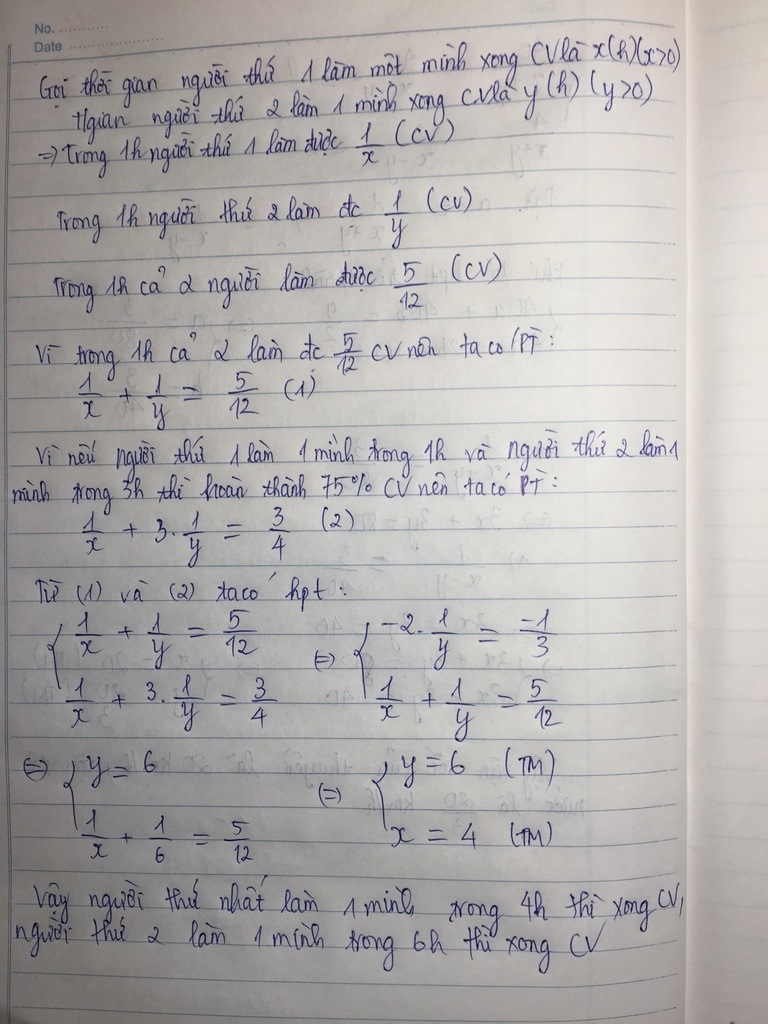 No. ............
Date .....................
Gọi thời gian người thứ 1 làm một mình xong CV là x(h)(x>0)
tgian người thứ 2 làm 1 mình xong CV là y(h) (y>0)
=> Trong 1h người thứ 1 làm được 1/x (CV)
Trong 1h người thứ 2 làm đc 1/y (CV)
Trong 1h cả 2 người làm được 5/12 (CV)
Vì trong 1h cả 2 làm đc 5/12 CV nên ta có PT:
1/x + 1/y = 5/12 (1)
Vì nếu người thứ 1 làm 1 mình trong 1h và người thứ 2 làm 1
mình trong 3h thì hoàn thành 75% CV nên ta có PT:
1/x + 3.1/y = 3/4 (2)
Từ (1) và (2) ta có hpt:
{ 1/x + 1/y = 5/12 <=> { -2.1/y = -1/3
1/x + 3.1/y = 3/4 1/x + 1/y = 5/12
<=> { y = 6 <=> { y = 6 (TM)
1/x + 1/6 = 5/12 x = 4 (TM)
Vậy người thứ nhất làm 1 mình trong 4h thì xong CV,
người thứ 2 làm 1 mình trong 6h thì xong CV